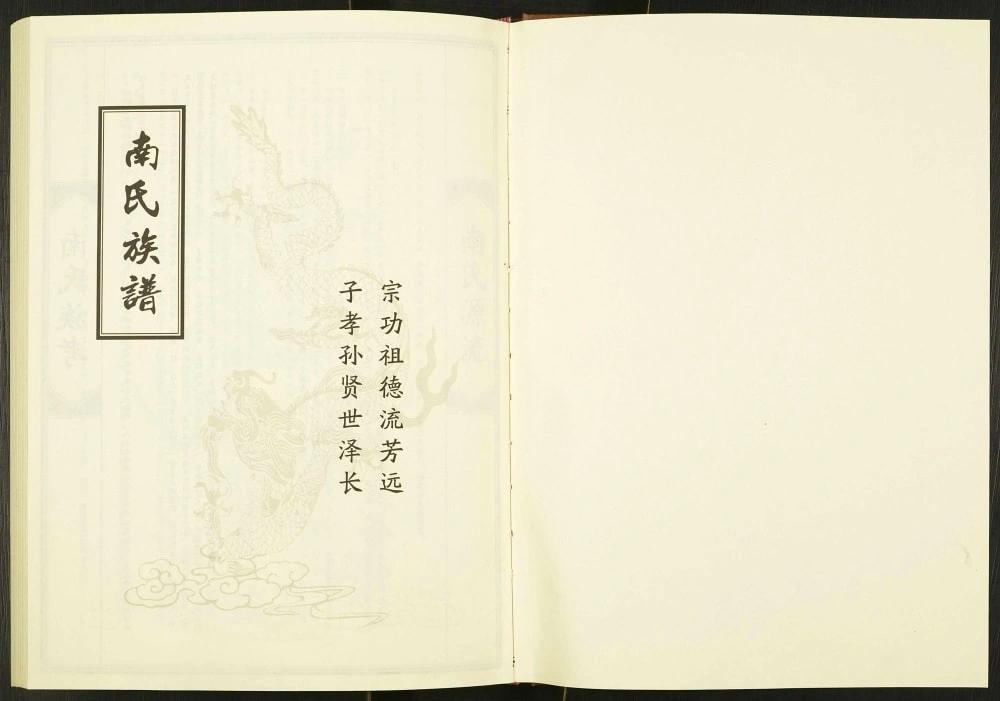 宗功祖德流芳远
子孝孙贤世泽长
南氏族譜